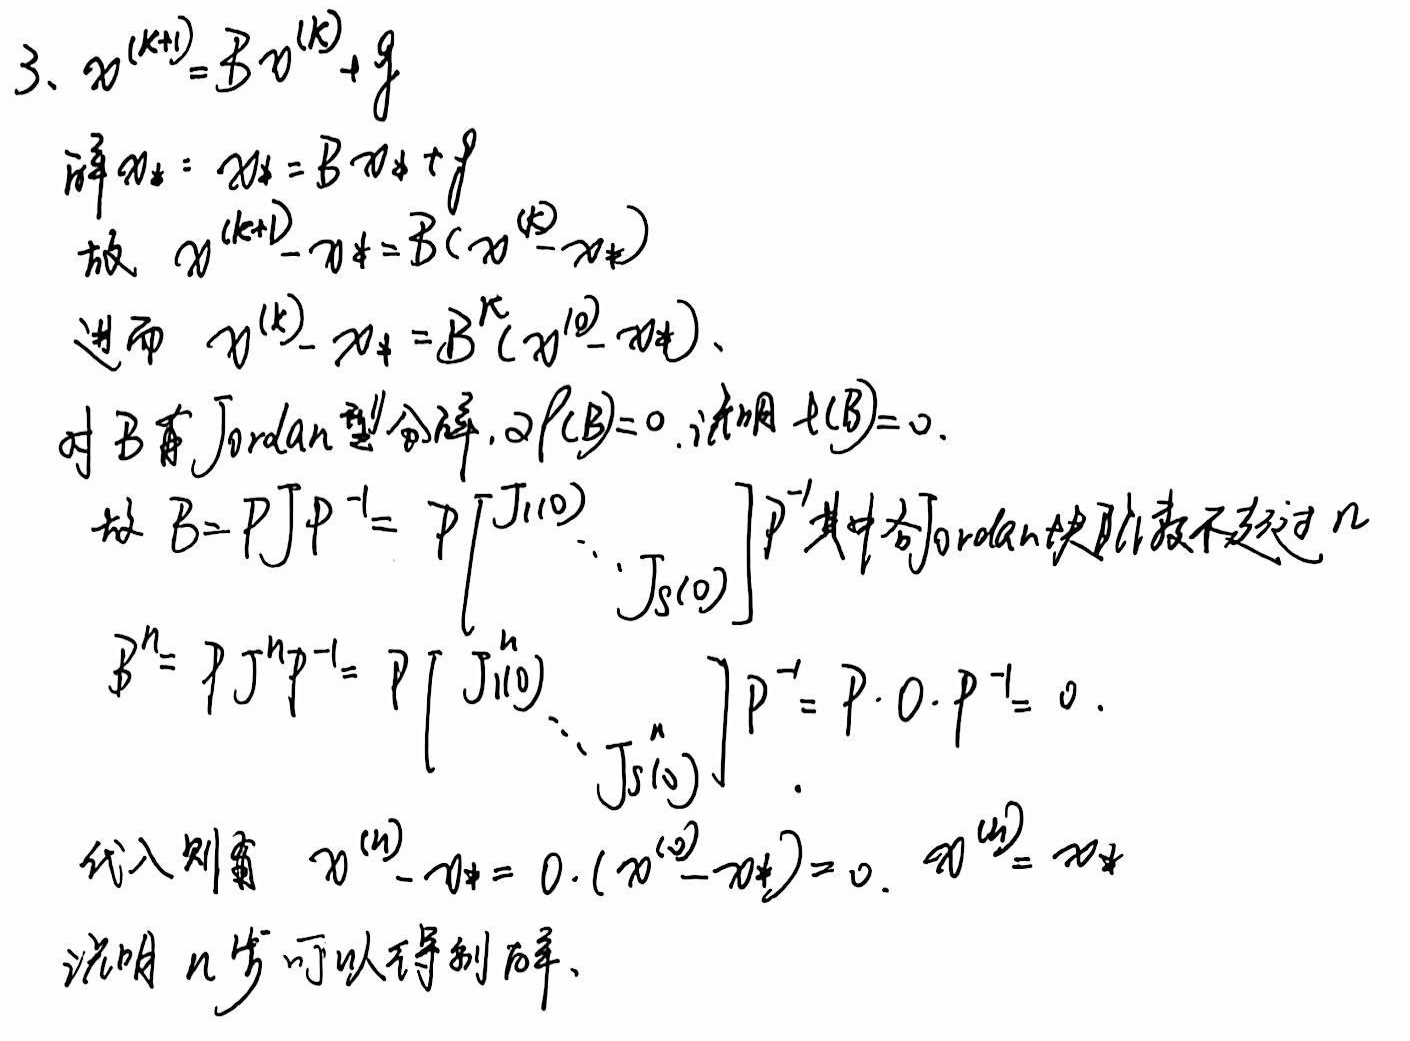 3、x^(k+1) = Bx^(k) + g
解x*: x* = Bx* + g
故 x^(k+1) - x* = B(x^(k) - x*)
进而 x^(k) - x* = B^k(x^(0) - x*)、
对B有Jordan型分解.又ρ(B)=0.说明λ(B)=0.
故 B = PJP^-1 = P[J1(0) ⋱ Js(0)]P^-1 其中各Jordan块阶数不超过n
B^n = PJ^nP^-1 = P[J1^n(0) ⋱ Js^n(0)]P^-1 = P·O·P^-1 = 0.
代入则有 x^(n) - x* = 0·(x^(0) - x*) = 0. x^(n) = x*
说明 n步可以得到解、